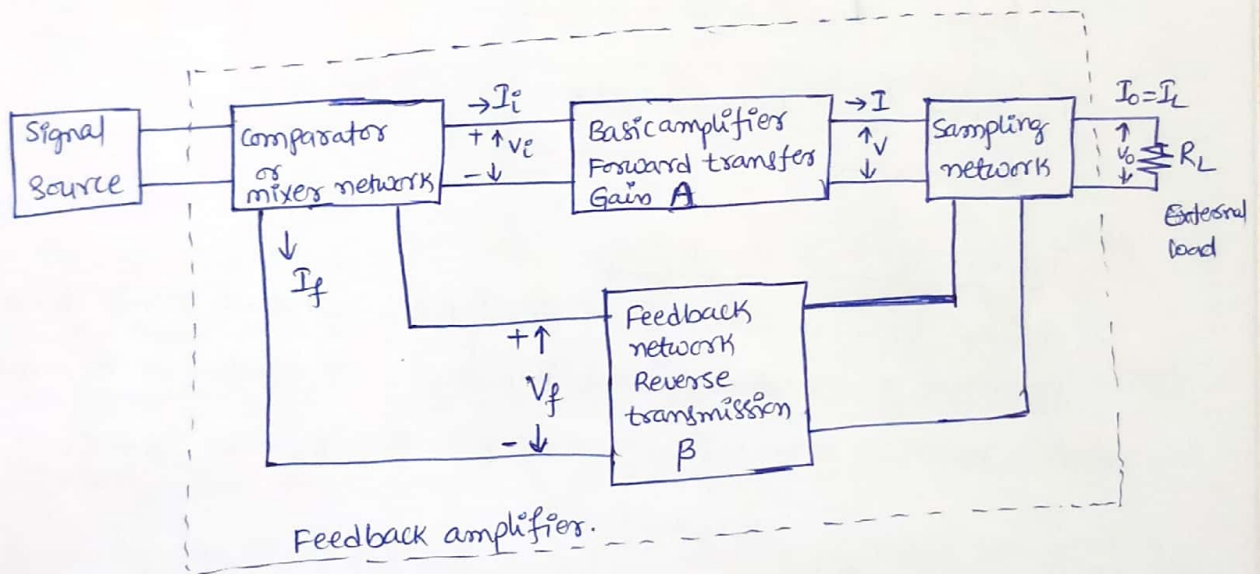 Signal
Source
Comparator
or
mixer network
→Ii
+ ↑ Vi
- ↓
Basic amplifier
Forward transfer
Gain A
→ I
↑ V
↓
Sampling
network
Io = IL
↑
Vo
↓
RL
External
load
↓
If
+ ↑
Vf
- ↓
Feedback
network
Reverse
transmission
β
Feedback amplifier.